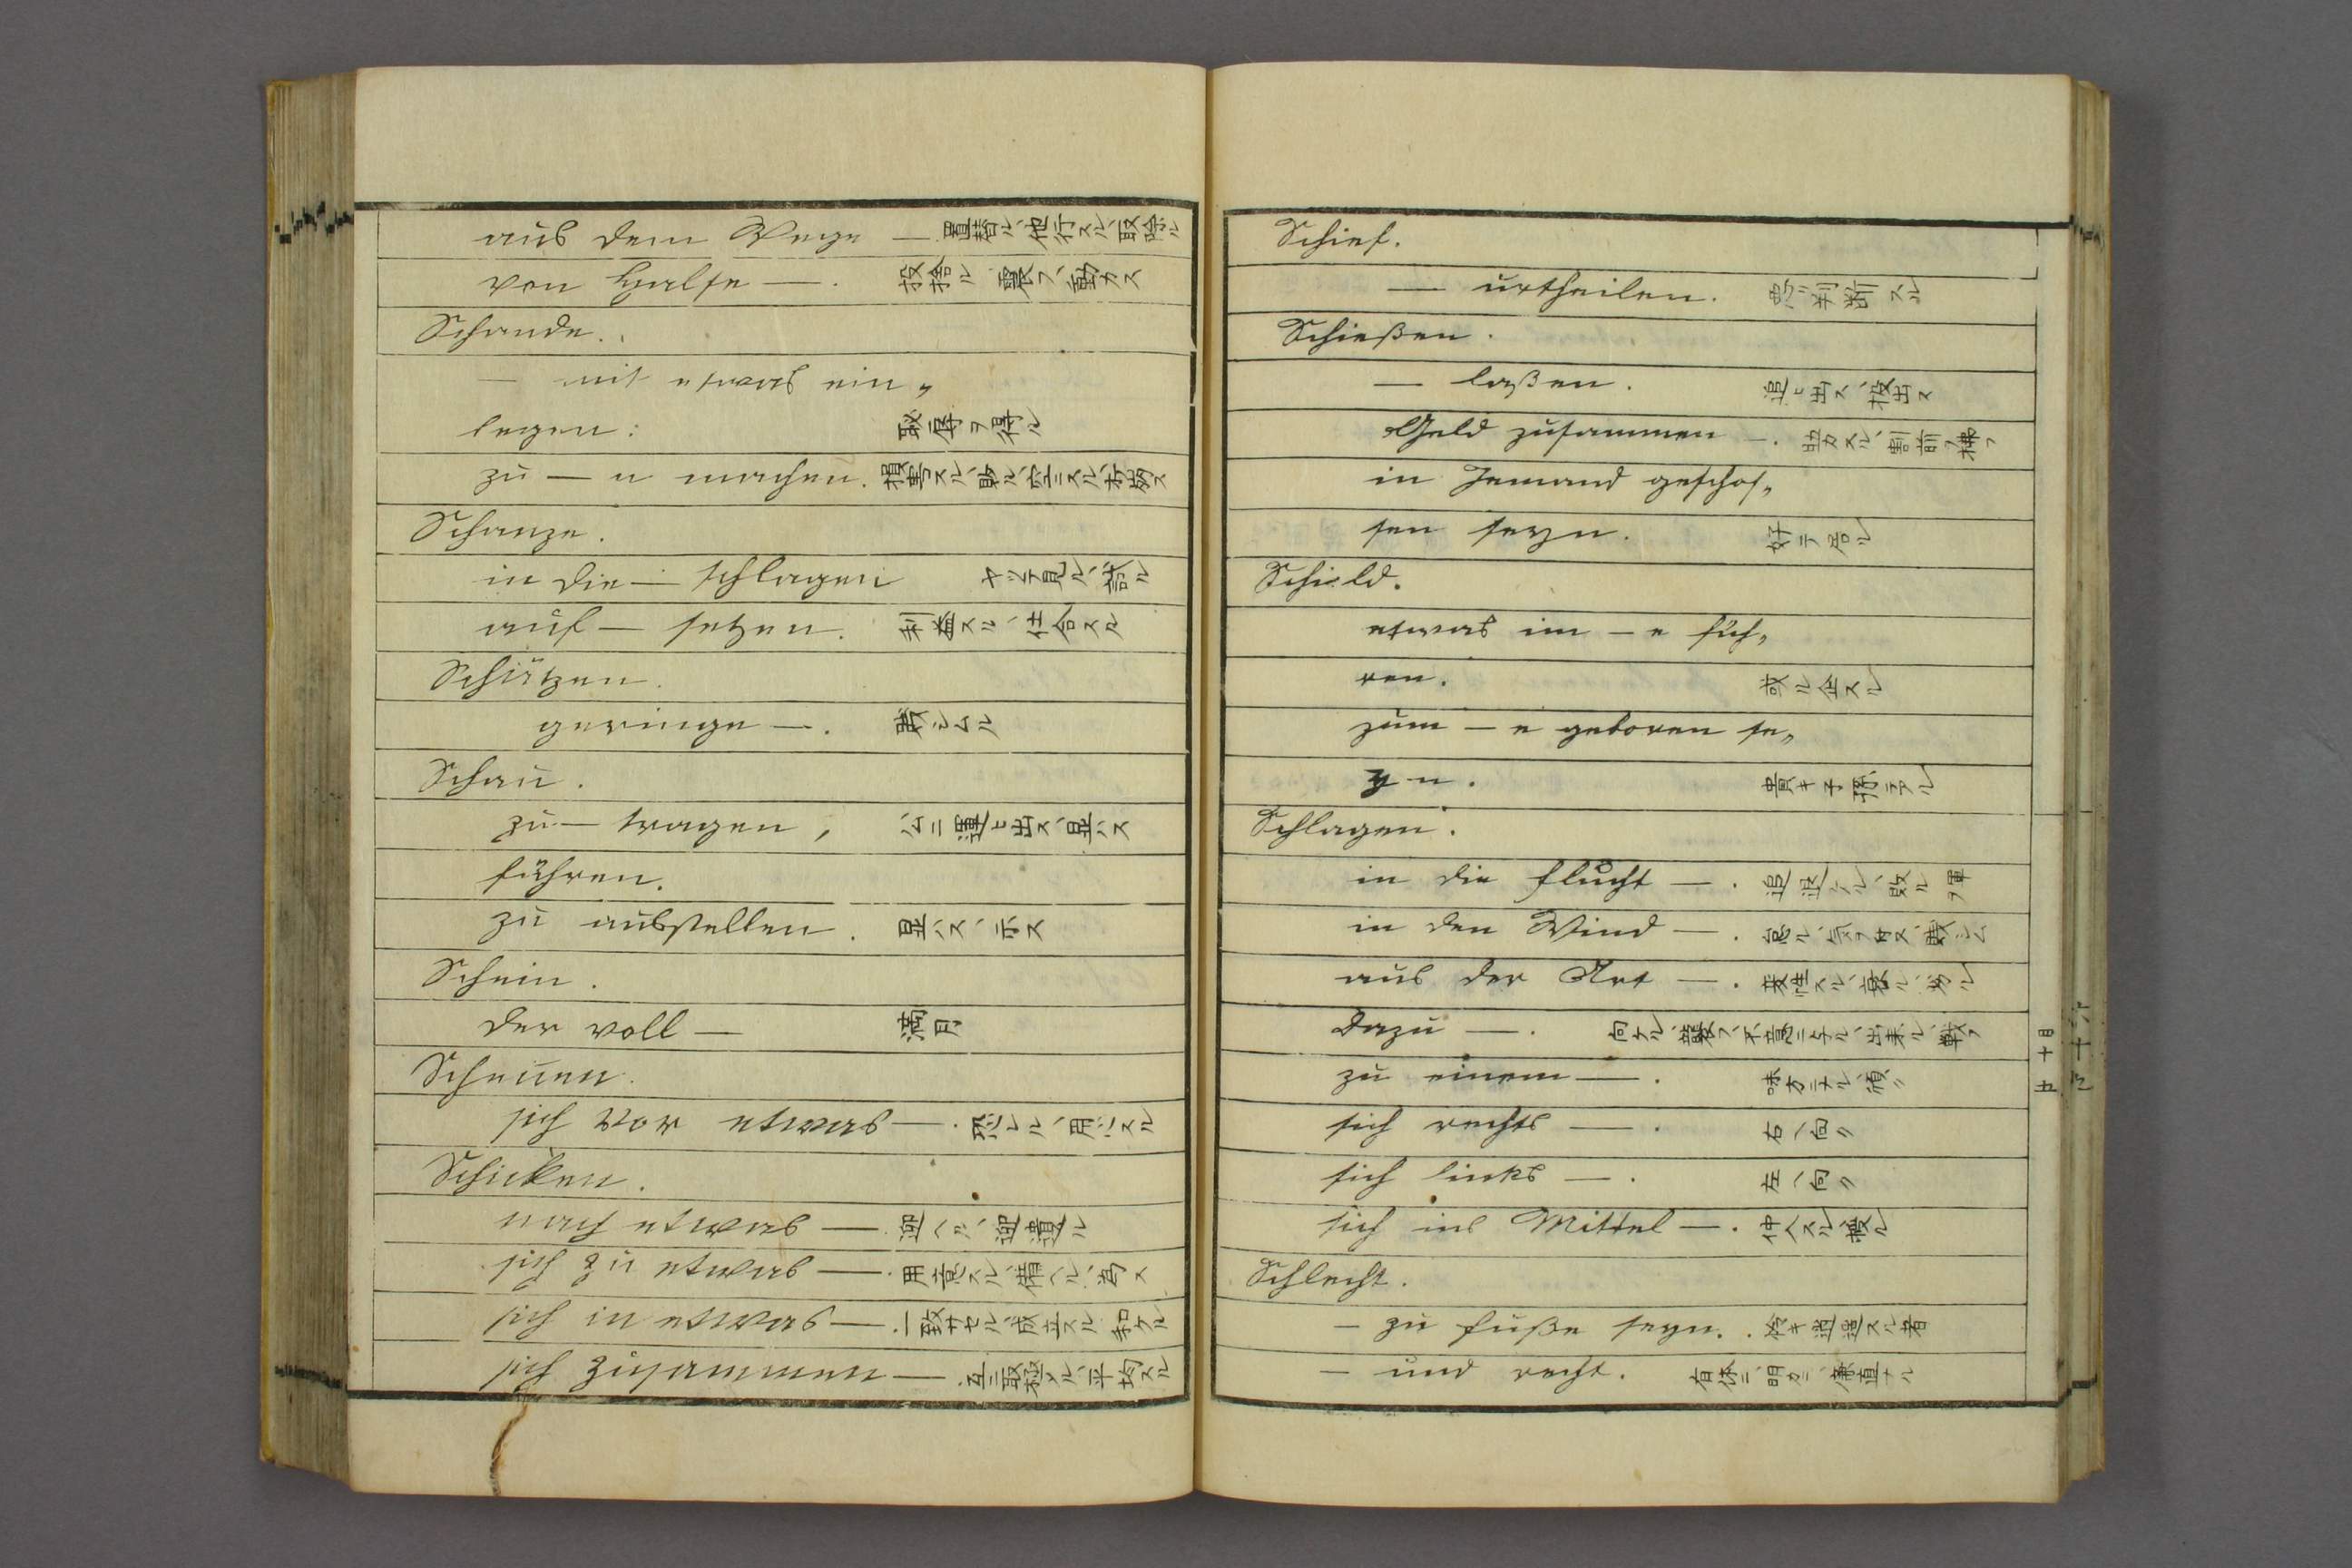 aus dem Wege — 置替ル、他行スル、取除ル
von Halse —. 投捨ル 震フ、動カス
Schande.
— mit etwas ein„
legen: 恥辱ヲ得ル
zu — n machen. 損害スル、敗ル、空ニスル
Schanze.
in die — schlagen ヤツテ見ル、試ル
auf — setzen. 利益スル、仕合スル
Schätzen.
geringe —. 蔑シムル
Schau.
zu — tragen, 公ニ運ヒ出ス、显ハス
führen.
zu ausstellen. 显ハス、示ス
Schein.
der voll — 満月
Scheuen.
sich vor etwas —. 恐レル、用心スル
Schicken.
nach etwas — 迎ヘル、迎遣ル
sich zu etwas —. 用意スル、備ヘル、為ス
sich in etwas —. 一致サセル、成立スル 和クル
sich zusammen — 互ニ取極メル、平均スル
Schief.
— urtheilen. 悪ク判断スル
Schießen.
— laßen. 追ヒ出ス、投出ス
Geld zusammen —. 助力スル、割前ヲ拂フ
in Jemand geschos„
sen seyn. 好テ居ル
Schild.
etwas im — e füh„
ren. 或ル企スル
zum — e geboren se„
yn. 貴キ子孫テアル
Schlagen.
in die flucht —. 追退クル、敗ル 軍ヲ
in den Wind —. 怠ル、気ヲ付ス、蔑シム
aus der Art —. 変性スル、衰ル、劣ル
dazu —. 向ケル、襲フ、不意ニケル、出来ル、戦フ
zu einem —. 味方ニナル、傾ク
sich rechts —. 右ヘ向ク
sich links —. 左ヘ向ク
sich ins Mittel —. 仲人スル、扱ル
Schlecht.
— zu fuße seyn. 逍遥スル者
— und recht. 有体ニ、明カニ、廉直ナル